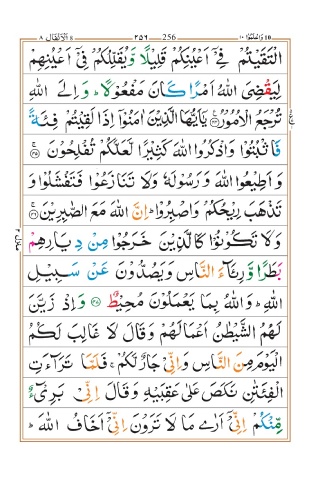 الانفال ٨ ٢٥٦ 256 واعلموا ١٠
الْتَقَيْتُمْ فِيْۤ اَعْيُنِكُمْ قَلِيْلًا وَّيُقَلِّلُكُمْ فِيْۤ اَعْيُنِهِمْ
لِيَقْضِيَ اللّٰهُ اَمْرًا كَانَ مَفْعُوْلًا ؕ وَاِلَى اللّٰهِ
تُرْجَعُ الْاُمُوْرُ ۟ يٰۤاَيُّهَا الَّذِيْنَ اٰمَنُوْۤا اِذَا لَقِيْتُمْ فِئَةً
فَاثْبُتُوْا وَاذْكُرُوا اللّٰهَ كَثِيْرًا لَّعَلَّكُمْ تُفْلِحُوْنَ ۟
وَاَطِيْعُوا اللّٰهَ وَرَسُوْلَهٗ وَلَا تَنَازَعُوْا فَتَفْشَلُوْا وَ
تَذْهَبَ رِيْحُكُمْ وَاصْبِرُوْا ؕ اِنَّ اللّٰهَ مَعَ الصّٰبِرِيْنَ ۟
وَلَا تَكُوْنُوْا كَالَّذِيْنَ خَرَجُوْا مِنْ دِيَارِهِمْ
بَطَرًا وَّرِئَآءَ النَّاسِ وَيَصُدُّوْنَ عَنْ سَبِيْلِ
اللّٰهِ ؕ وَاللّٰهُ بِمَا يَعْمَلُوْنَ مُحِيْطٌ ۟ وَاِذْ زَيَّنَ
لَهُمُ الشَّيْطٰنُ اَعْمَالَهُمْ وَقَالَ لَا غَالِبَ لَكُمُ
الْيَوْمَ مِنَ النَّاسِ وَاِنِّيْ جَارٌ لَّكُمْ ۚ فَلَمَّا تَرَآءَتِ
الْفِئَتٰنِ نَكَصَ عَلٰى عَقِبَيْهِ وَقَالَ اِنِّيْ بَرِيْٓءٌ
مِّنْكُمْ اِنِّيْۤ اَرٰى مَا لَا تَرَوْنَ اِنِّيْۤ اَخَافُ اللّٰهَ ؕ